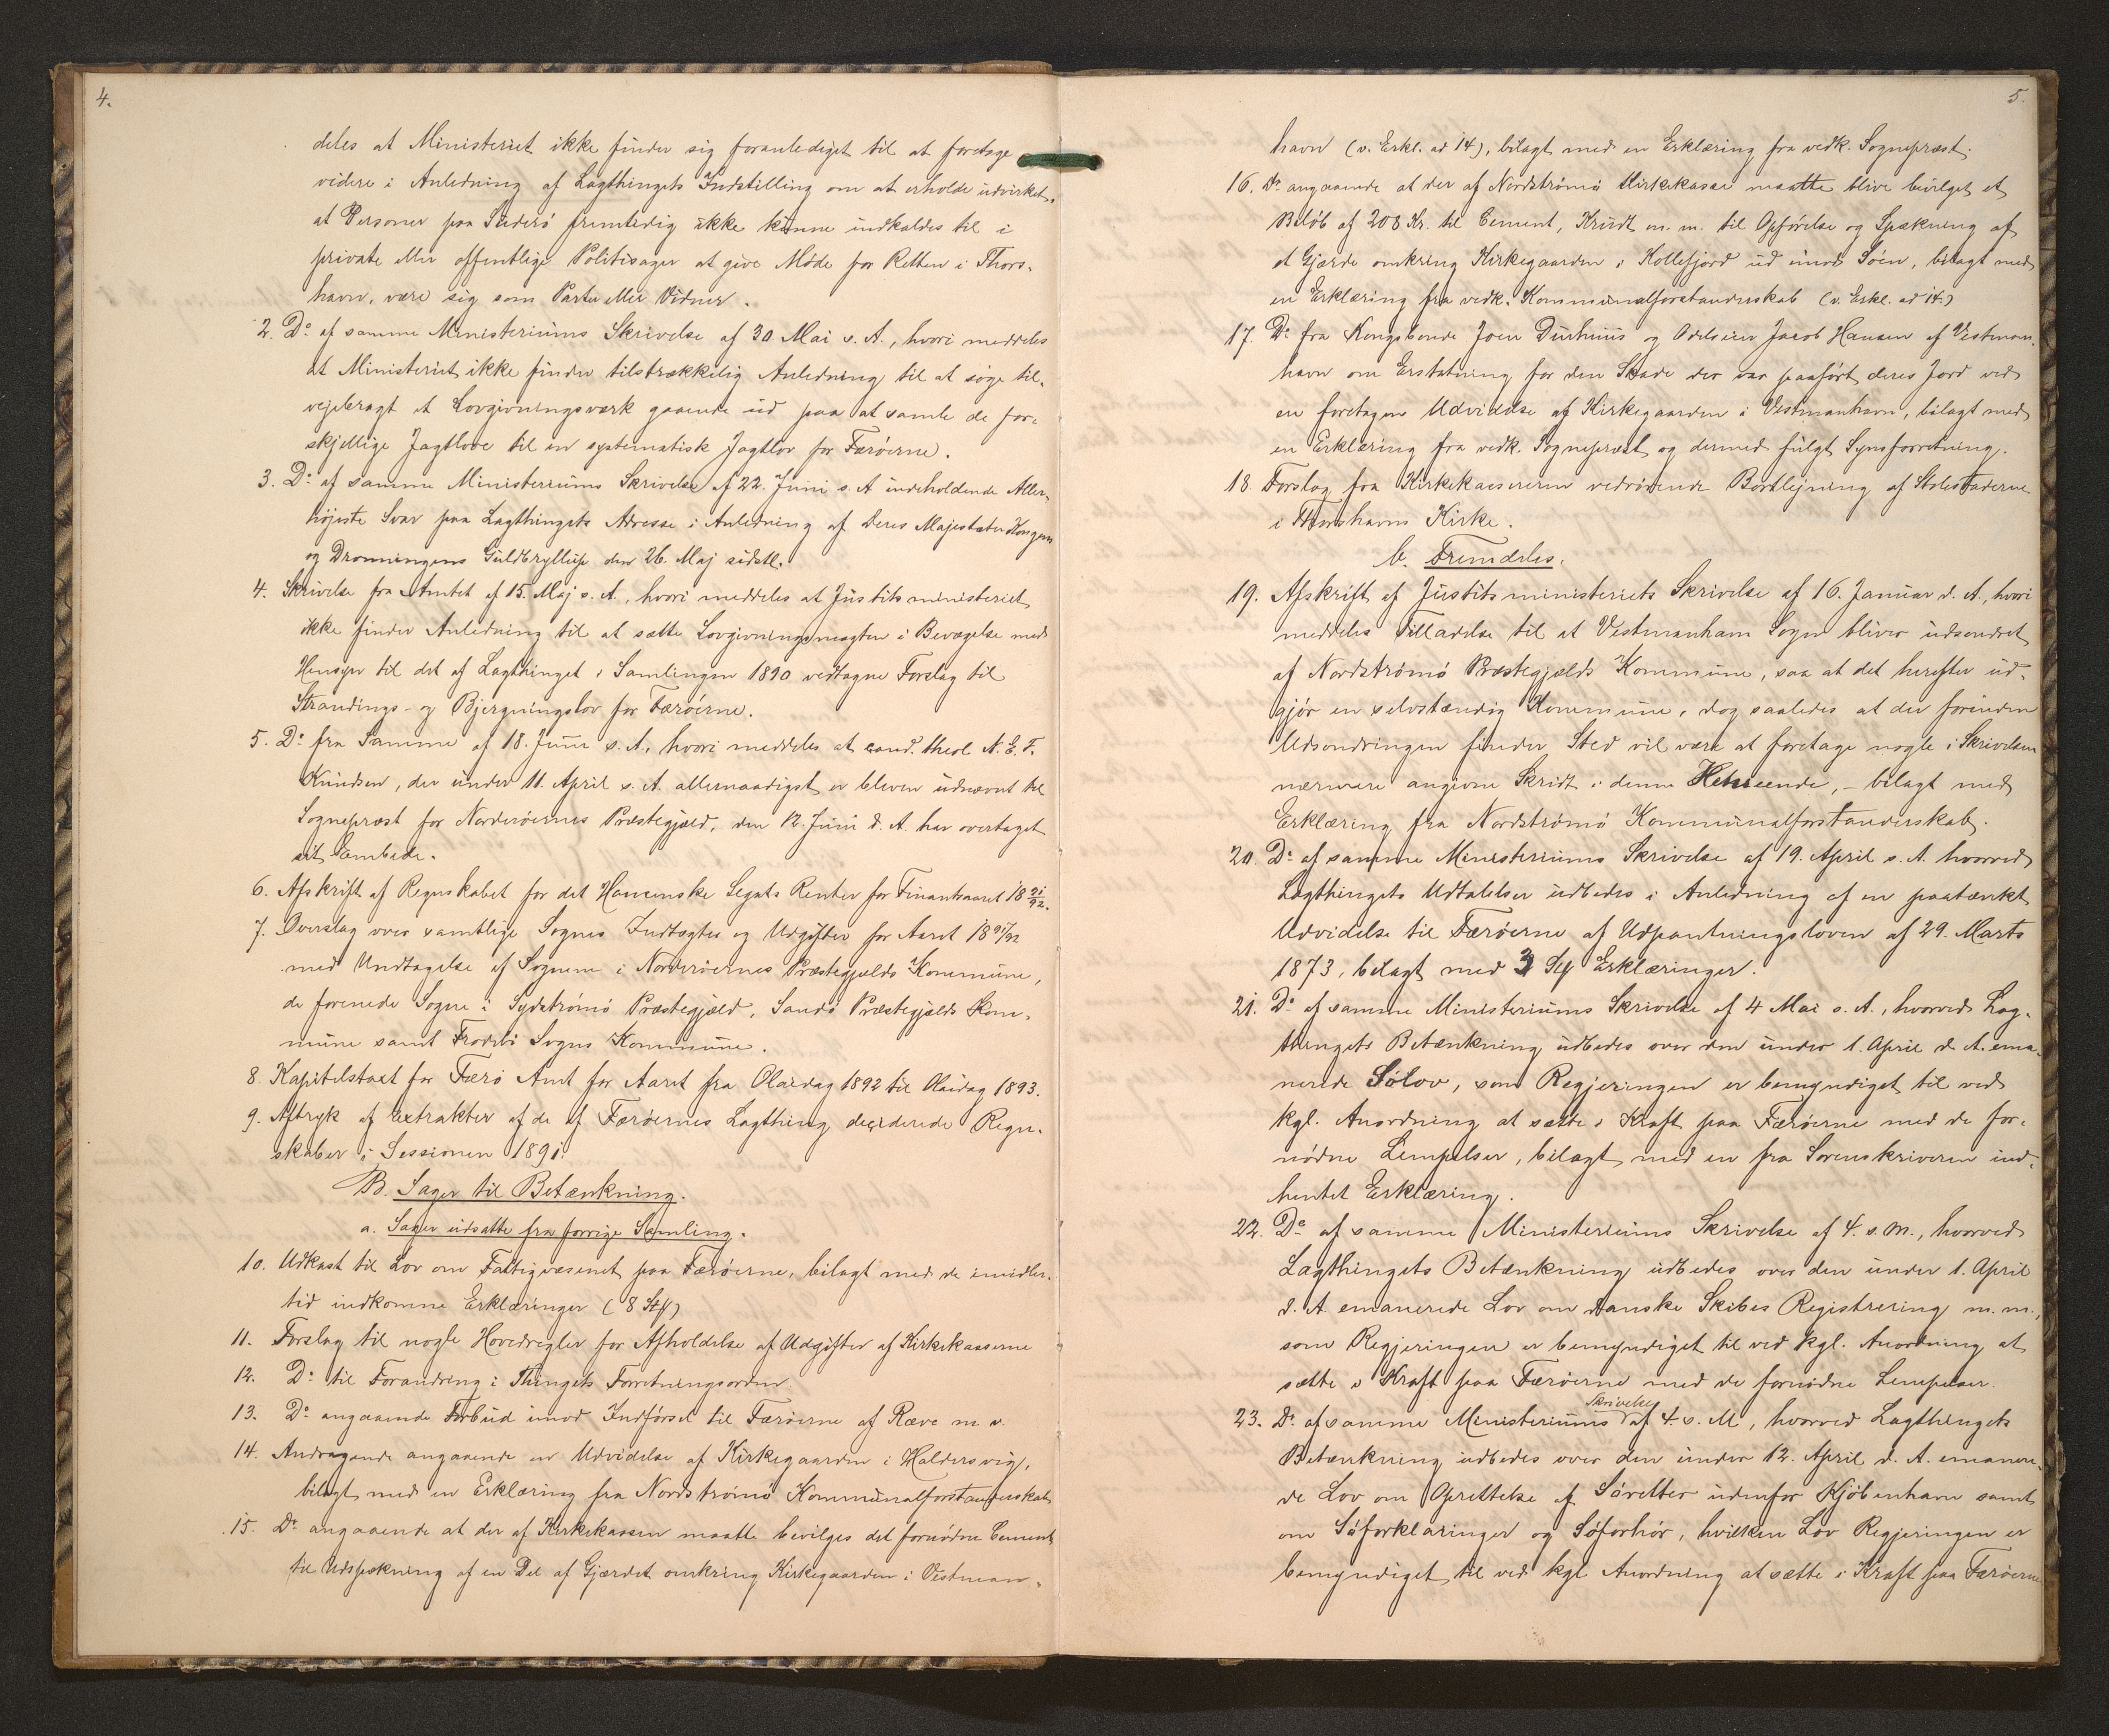 4.
deles at Ministeriet ikke finder sig foranlediget til at foretage
videre i Anledning af Lagthingets Indstilling om at erholde udvirket,
at Personer paa Suderö fremtidig ikke kunne indkaldes til i
private eller offentlige Politisager at give Möde for Retten i Thors-
havn, være sig som Parter eller Vidner.
2. Do af samme Ministeriums Skrivelse af 30 Mai s. A., hvori meddeles
at Ministeriet ikke finder tilstrækkelig Anledning til at söge til-
vejebragt et Lovgivningsværk gaaende ud paa at samle de for-
skjellige Jagtlove til en systematisk Jagtlov for Færöerne.
3. Do af samme Ministeriums Skrivelse af 22. Juni s. A indeholdende Aller-
höjeste Svar paa Lagthingets Adresse i Anledning af Deres Majestæter Kongens
og Dronningens Guldbryllup den 26. Maj sidstl.
4. Skrivelse fra Amtet af 15. Maj s. A., hvori meddeles at Justitsministeriet
ikke finder Anledning til at sætte Lovgivningsmagten i Bevægelse med
Hensyn til det af Lagthinget i Samlingen 1890 vedtagne Forslag til
Strandings- og Bjergningslov for Færöerne.
5. Do fra Samme af 18. Juni s. A., hvori meddeles at cand. theol A. E. F.
Knudsen, der under 11. April s. A. allernaadigst er bleven udnævnt til
Sognepræst for Norderöernes Præstegjæld, den 12. Juni d. A. har overtaget
sit Embede.
6. Afskrift af Regnskabet for det Hamenske Legats Renter for Finantsaaret 18 91/92.
7. Overslag over samtlige Sognes Indtægter og Udgifter for Aaret 18 91/92
med Undtagelse af Sognene i Norderöernes Præstegjælds Kommune,
de forenede Sogne i Sydströmö Præstegjæld, Sandö Præstegjælds Kom-
mune samt Frodebö Sogns Kommune.
8. Kapitelstaxt for Færö Amt for Aaret fra Olaidag 1892 til Olaidag 1893.
9. Aftryk af Extrakter af de af Færöernes Lagthing deciderede Regn-
skaber i Sessionen 1891.
B. Sager til Betænkning.
a. Sager udsatte fra forrige Samling.
10. Udkast til Lov om Fattigvæsenet paa Færöerne, bilagt med de imidler-
tid indkomne Erklæringer (8 Stk)
11. Forslag til nogle Hovedregler for Afholdelse af Udgifter af Kirkekasserne
12. Do til Forandring i Thingets Forretningsorden
13. Do angaaende Forbud imod Indförsel til Færöerne af Ræve m v.
14. Andragende angaaende en Udvidelse af Kirkegaarden i Haldersvig,
bilagt med en Erklæring fra Nordströmö Kommunalforstanderskab
15. Do angaaende at der af Kirkekassen maatte bevilges det fornödne Cement
til Udspækning af en Del af Gjærdet omkring Kirkegaarden i Vestman-
5.
havn (v. Erkl. ad 14), bilagt med en Erklæring fra vedk. Sognepræst.
16. Do angaaende at der af Nordströmö Kirkekasse maatte blive bevilget et
Belöb af 208 Kr. til Cement, Krudt m. m. til Opförelse og Spækning af
et Gjærde omkring Kirkegaarden i Kollefjord ud imod Söen, bilagt med
en Erklæring fra vedk. Kommunalforstanderskab (v. Erkl. ad 14.)
17. Do fra Kongsbonde Joen Durhuus og Odelseier Jacob Hansen af Vestman-
havn om Erstatning for den Skade der var paafört deres Jord ved
en foretagen Udvidelse af Kirkegaarden i Vestmanhavn, bilagt med
en Erklæring fra vedk. Sognepræst og dermed fulgt Synsforretning.
18 Forslag fra Kirkekassereren vedrörende Bortlejning af Stolestaderne
i Thorshavns Kirke.
b. Fremdeles.
19. Afskrift af Justitsministeriets Skrivelse af 16. Januar d. A., hvori
meddeles Tilladelse til at Vestmanhavn Sogn bliver udsondret
af Nordströmö Præstegjælds Kommune, saa at det herefter ud-
gjör en selvstændig Kommune, dog saaledes at der forinden
Udsondringen finder Sted vil være at foretage nogle i Skrivelsen
nærmere angivne Skridt i denne Henseende, – bilagt med
Erklæring fra Nordströmö Kommunalforstanderskab.
20. Do af samme Ministeriums Skrivelse af 19. April s. A. hvorved
Lagthingets Udtalelser udbedes i Anledning af en paatænkt
Udvidelse til Færöerne af Udpantningsloven af 29. Marts
1873, bilagt med 3 Stk Erklæringer.
21. Do af samme Ministeriums Skrivelse af 4 Mai s. A., hvorved Lag-
thingets Betænkning udbedes over den under 1. April d. A. ema-
nerede Sölov, som Regjeringen er bemyndiget til ved
kgl. Anordning at sætte i Kraft paa Færöerne med de for-
nödne Lempelser, bilagt med en fra Sorenskriveren ind-
hentet Erklæring.
22. Do af samme Ministeriums Skrivelse af 4. s. M., hvorved
Lagthingets Betænkning udbedes over den under 1. April
d. A emanerede Lov om danske Skibes Registrering m. m.,
som Regjeringen er bemyndiget til ved kgl. Anordning at
sætte i Kraft paa Færöerne med de fornödne Lempelser.
Skrivelse
23. Do af samme Ministeriums af 4. s. M, hvorved Lagthingets
Betænkning udbedes over den under 12. April d. A. emanere-
de Lov om Oprettelse af Söretter udenfor Kjöbenhavn samt
om Söforklaringer og Söforhör, hvilken Lov Regjeringen er
bemyndiget til ved kgl Anordning at sætte i Kraft paa Færöerne